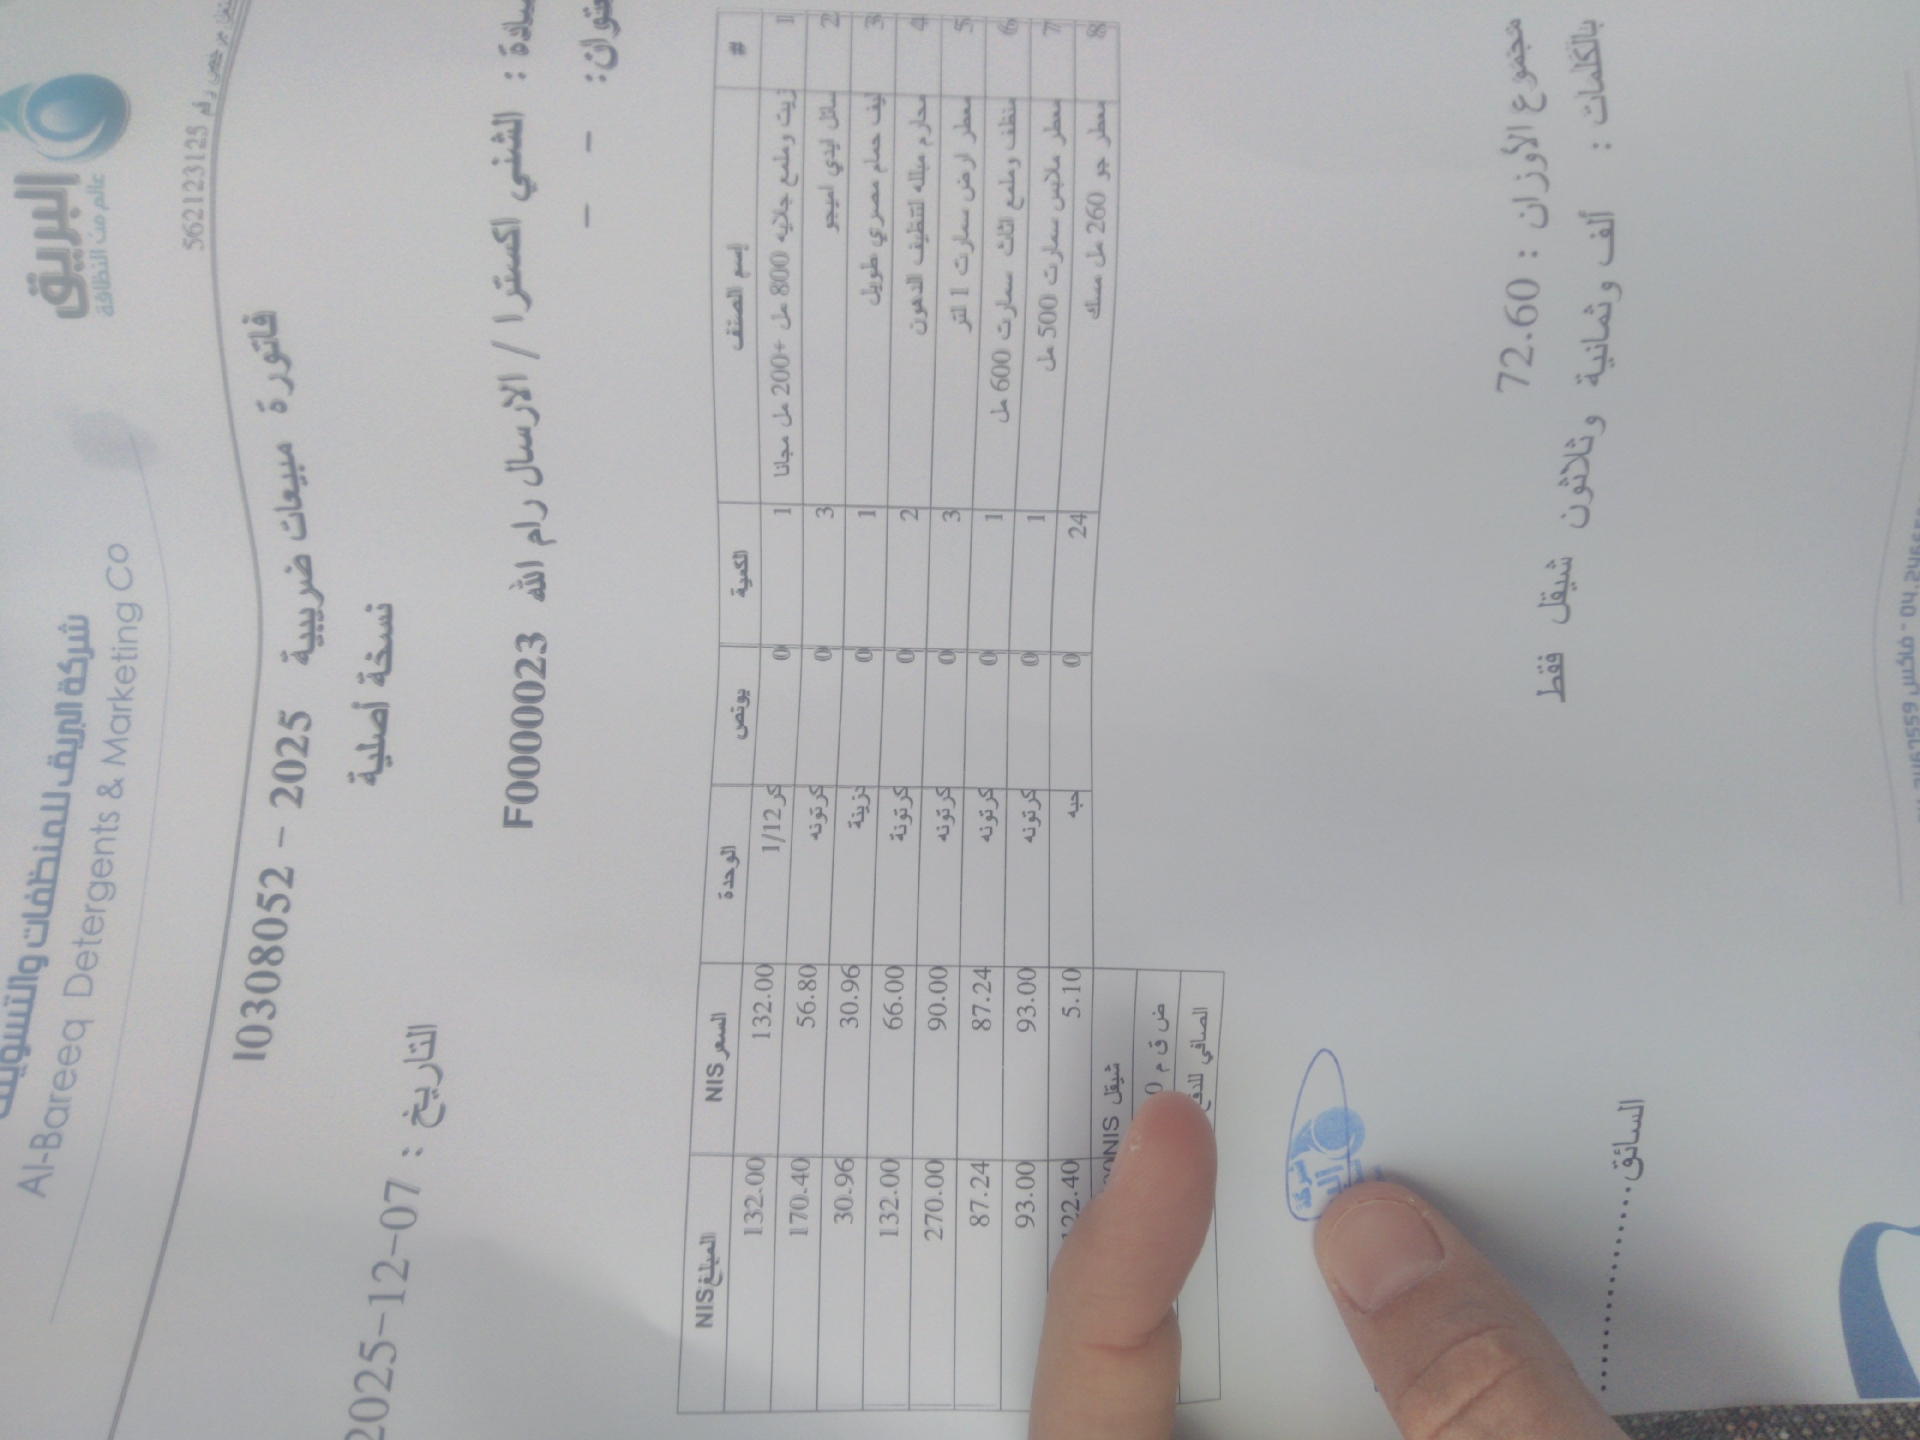 شركة البريق للمنظفات والتسويق
Al-Bareeq Detergents & Marketing Co
البريق
عالم من النظافة
رقم 562123125
فاتورة مبيعات ضريبية 2025 - I0308052
نسخة أصلية
التاريخ : 2025-12-07
F0000023 الشني اكسترا / الارسال رام الله
- - -
# إسم الصنف الكمية بونص الوحدة السعر NIS المبلغ NIS
1 زيت وملمع جلاتيه 800 مل +200 مل مجانا 1 0 كر 1/12 132.00 132.00
2 سائل ايدي اميجو 3 0 كرتونه 56.80 170.40
3 ليف حمام مصري طويل 1 0 دزينة 30.96 30.96
4 محارم مبلله لتنظيف الدهون 2 0 كرتونة 66.00 132.00
5 معطر ارض سمارت 1 لتر 3 0 كرتونه 90.00 270.00
6 منظف وملمع اثاث سمارت 600 مل 1 0 كرتونه 87.24 87.24
7 معطر ملابس سمارت 500 مل 1 0 كرتونه 93.00 93.00
8 معطر جو 260 مل مسك 24 0 حبه 5.10 122.40
شيقل NIS
ض ق م
الصافي للدفع
مجموع الأوزان : 72.60
بالكلمات : ألف وثمانية وثلاثون شيقل فقط
شركة
السائق
فاكس